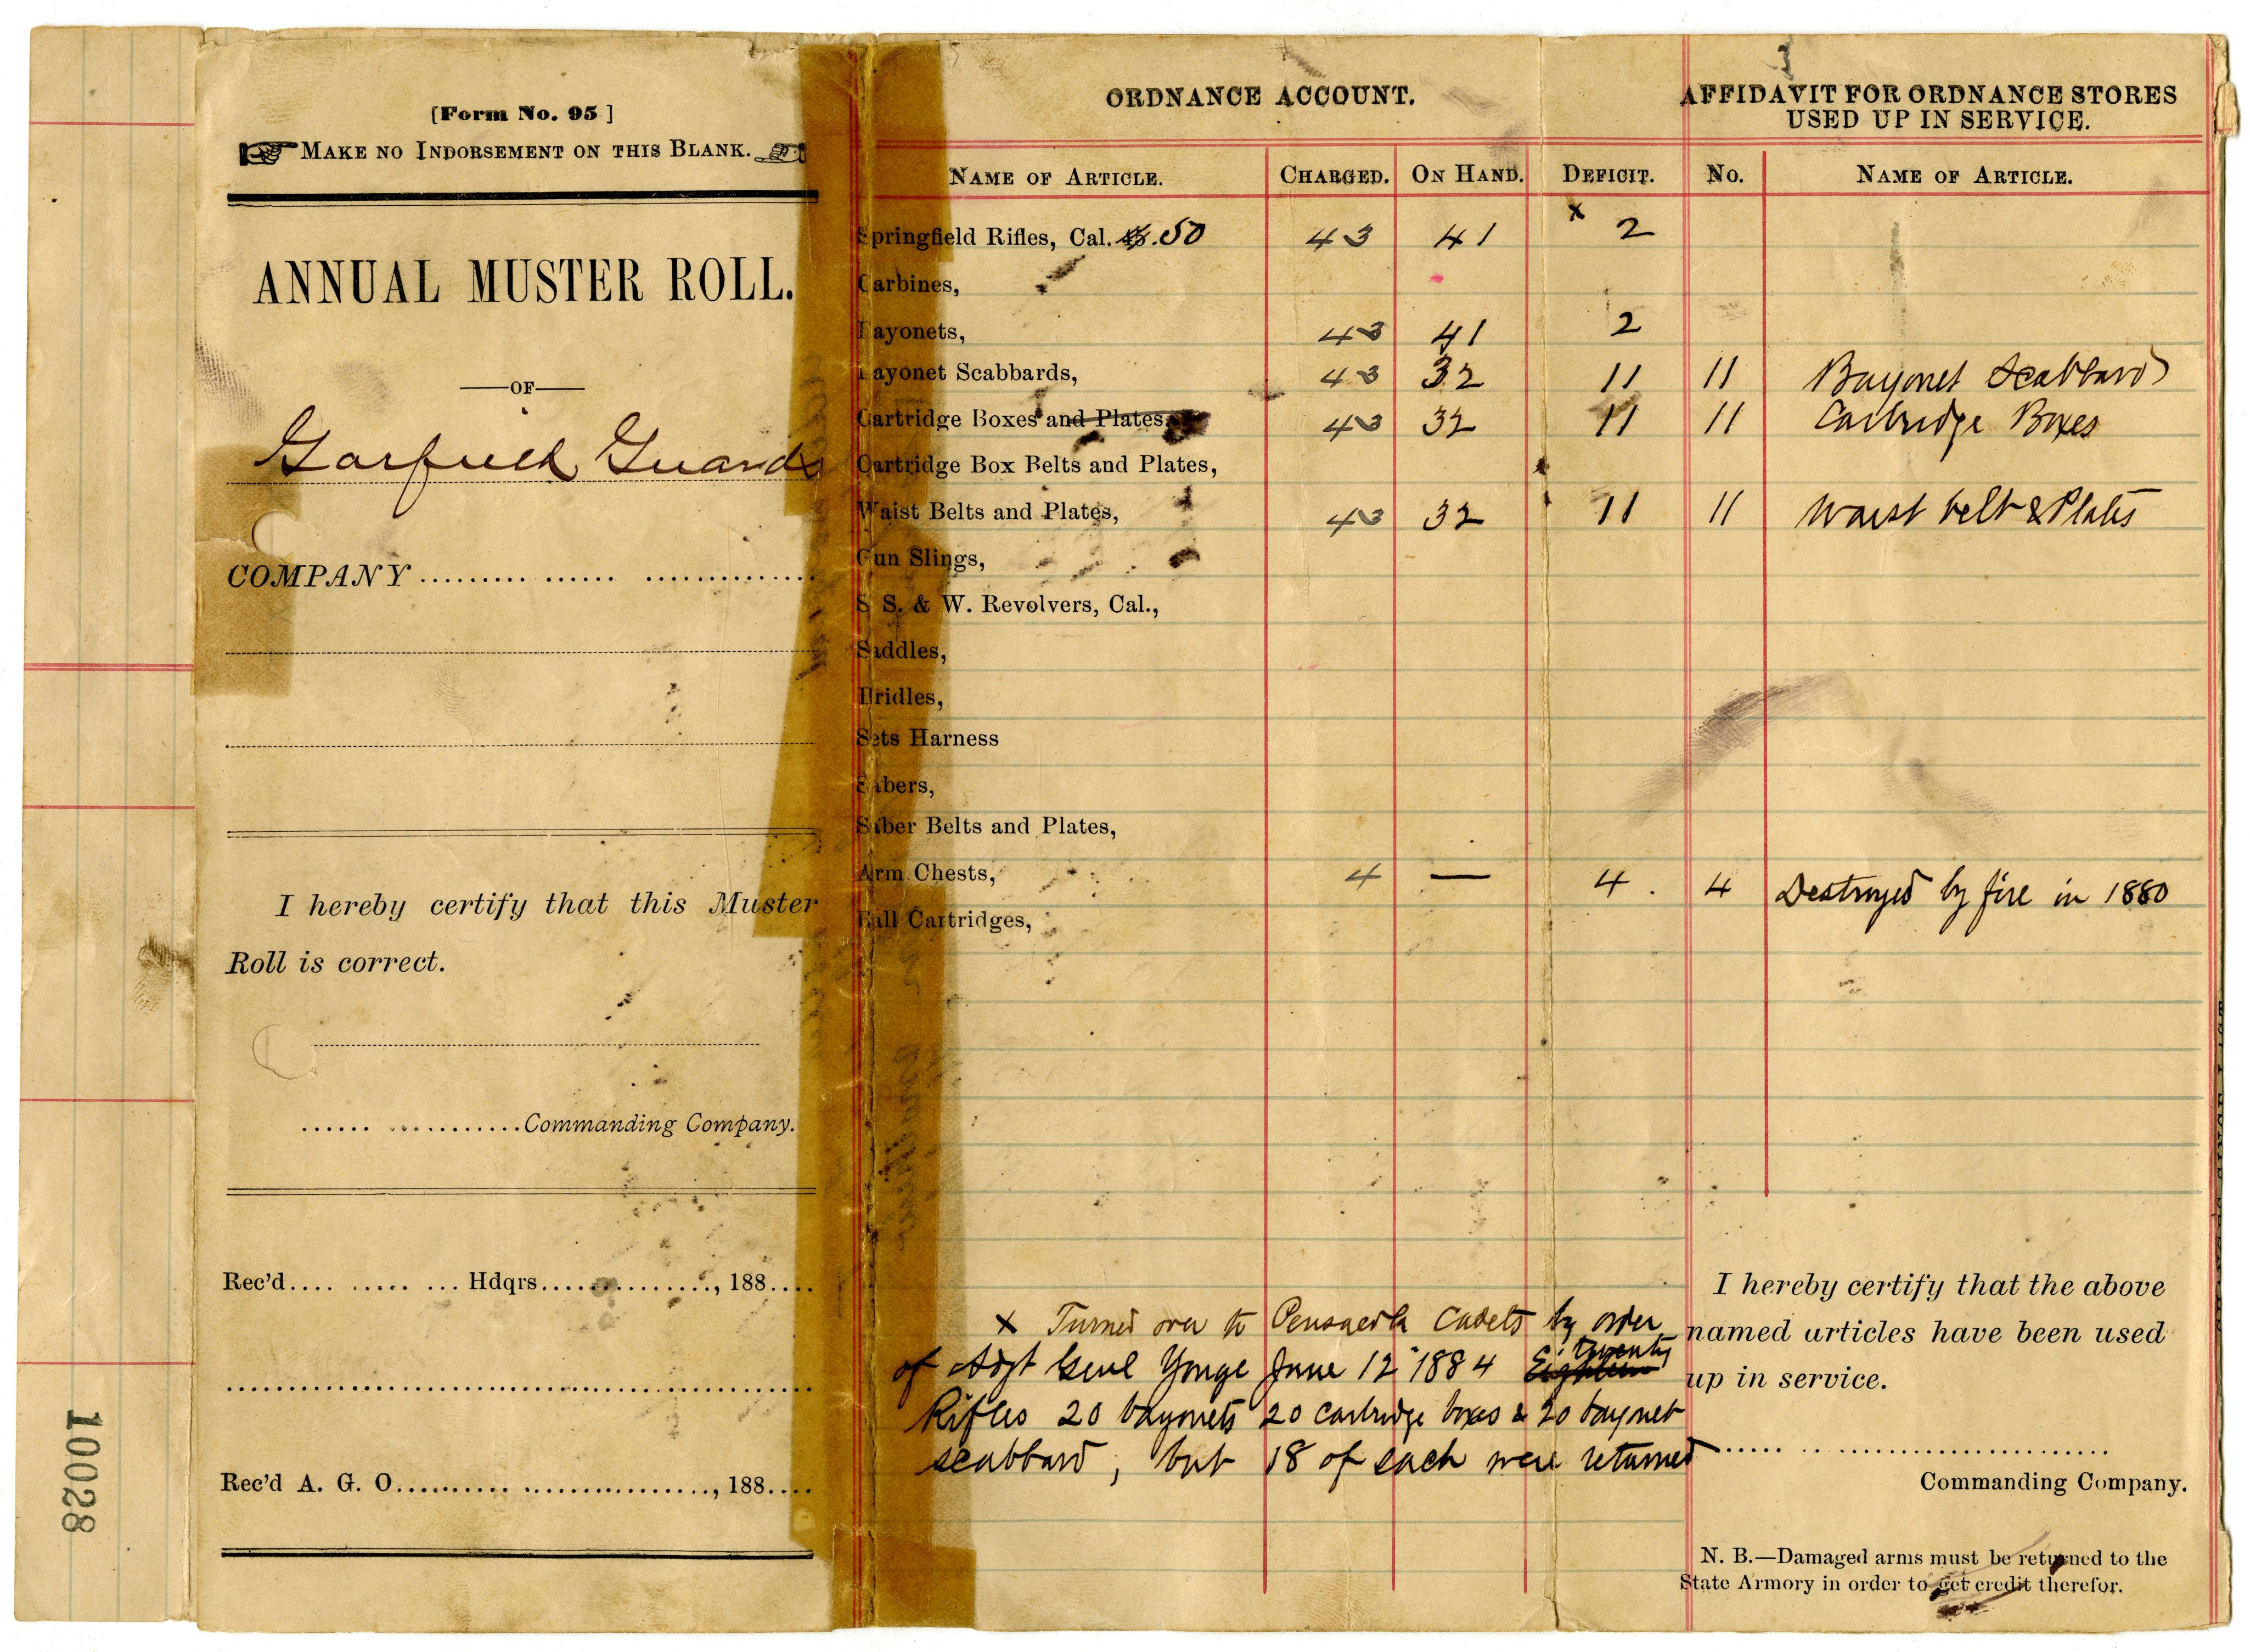 [Form No. 95]
MAKE NO INDORSEMENT ON THIS BLANK.
ANNUAL MUSTER ROLL.
—OF—
Garfield Guards
COMPANY
I hereby certify that this Muster
Roll is correct.
Commanding Company.
Rec'd.... Hdqrs...., 188....
Rec'd A. G. O...., 188....
10028
ORDNANCE ACCOUNT.
NAME OF ARTICLE. CHARGED. ON HAND. DEFICIT.
Springfield Rifles, Cal. 45 .50 43 41 x 2
Carbines,
Bayonets, 43 41 2
Bayonet Scabbards, 43 32 11
Cartridge Boxes and Plates, 43 32 11
Cartridge Box Belts and Plates,
Waist Belts and Plates, 43 32 11
Gun Slings,
S. S. & W. Revolvers, Cal.,
Saddles,
Bridles,
Sets Harness
Sabers,
Saber Belts and Plates,
Arm Chests, 4 — 4.
Ball Cartridges,
x Turned over to Pensacola Cadets by order
of Adjt Genl Yonge June 12" 1884 Eighteen twenty
Rifles 20 bayonets 20 cartridge boxes & 20 bayonet
scabbard, but 18 of each were returned
AFFIDAVIT FOR ORDNANCE STORES
USED UP IN SERVICE.
NO. NAME OF ARTICLE.
11 Bayonet Scabbards
11 Cartridge Boxes
11 Waist belt & Plates
4 Destroyed by fire in 1880
I hereby certify that the above
named articles have been used
up in service.
Commanding Company.
N. B.—Damaged arms must be returned to the
State Armory in order to get credit therefor.